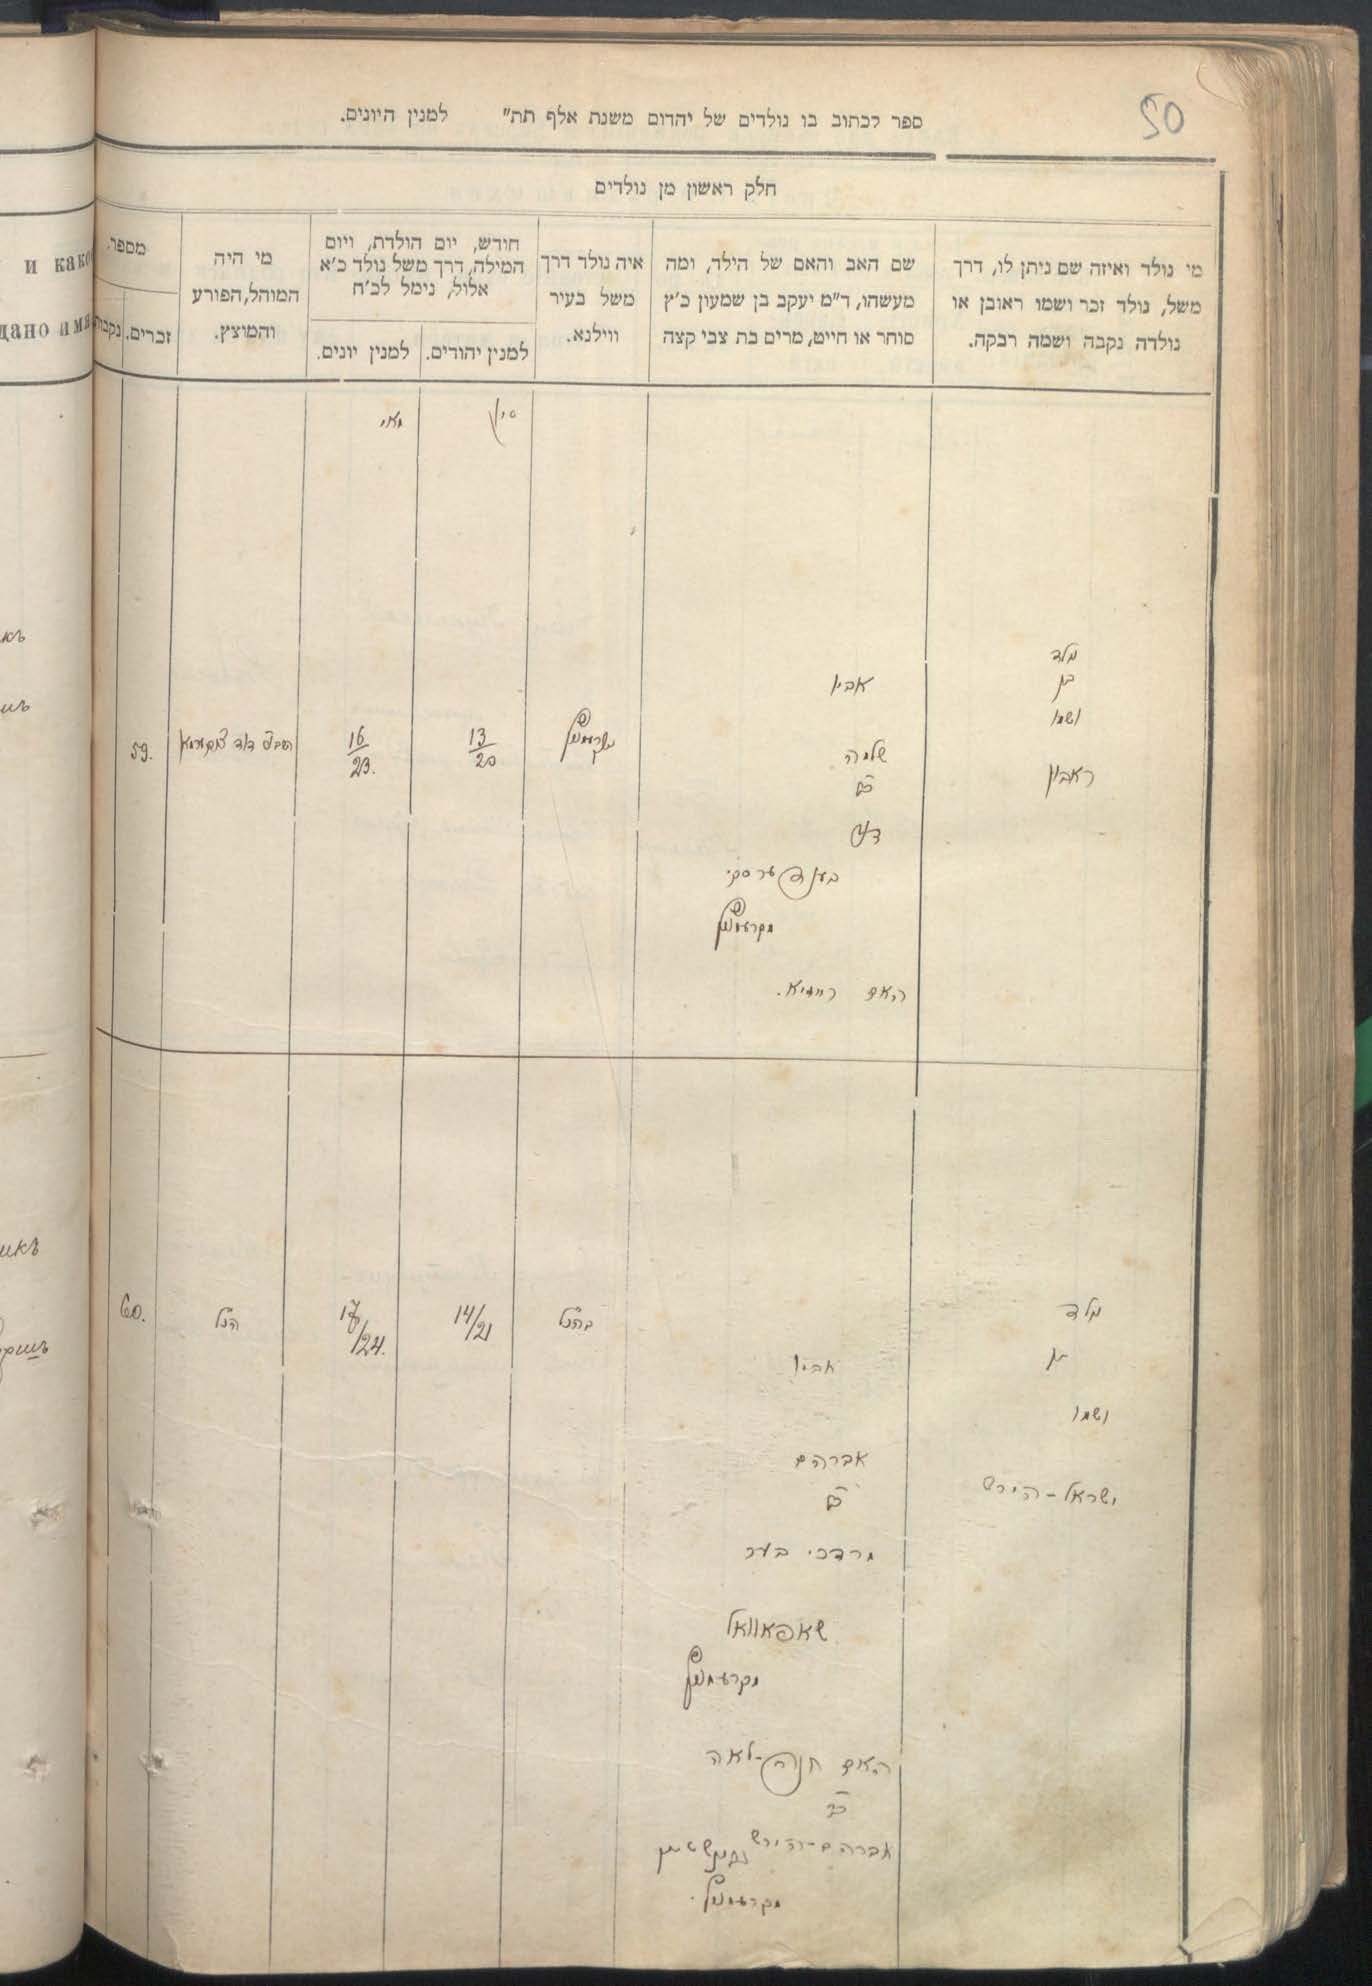 50
ספר לכתוב בו נולדים של יהדום משנת אלף תת" למנין היונים.
חלק ראשון מן נולדים
מי נולד ואיזה שם ניתן לו, דרך
משל, נולד זכר ושמו ראובן או
נולדה נקבה ושמה רבקה.
שם האב והאם של הילד, ומה
מעשהו, ד"מ יעקב בן שמעון כ'ץ
סוחר או חייט, מרים בת צבי קצה
איה נולד דרך
משל בעיר
ווילנא.
חודש, יום הולדת, ויום
המילה, דרך משל נולד כ'א
אלול, נימל לכ'ח
למנין יהודים.
למנין יונים.
מי היה
המוהל, הפורע
והמוצץ.
מספר.
זכרים.
נקבות
и како
дано имя
סיון
מאי
נולד
בן
ושמו
ראובן
אביו
שלמה
האם
13/20
16/23.
59.
נולד
בן
ושמו
ישראל-הירש
אביו
אברהם
מרדכי בער
שאפאוואל
האם חנה-לאה
אברהם-הירש
בהנ"ל
14/21
17/24.
הנ"ל
60.